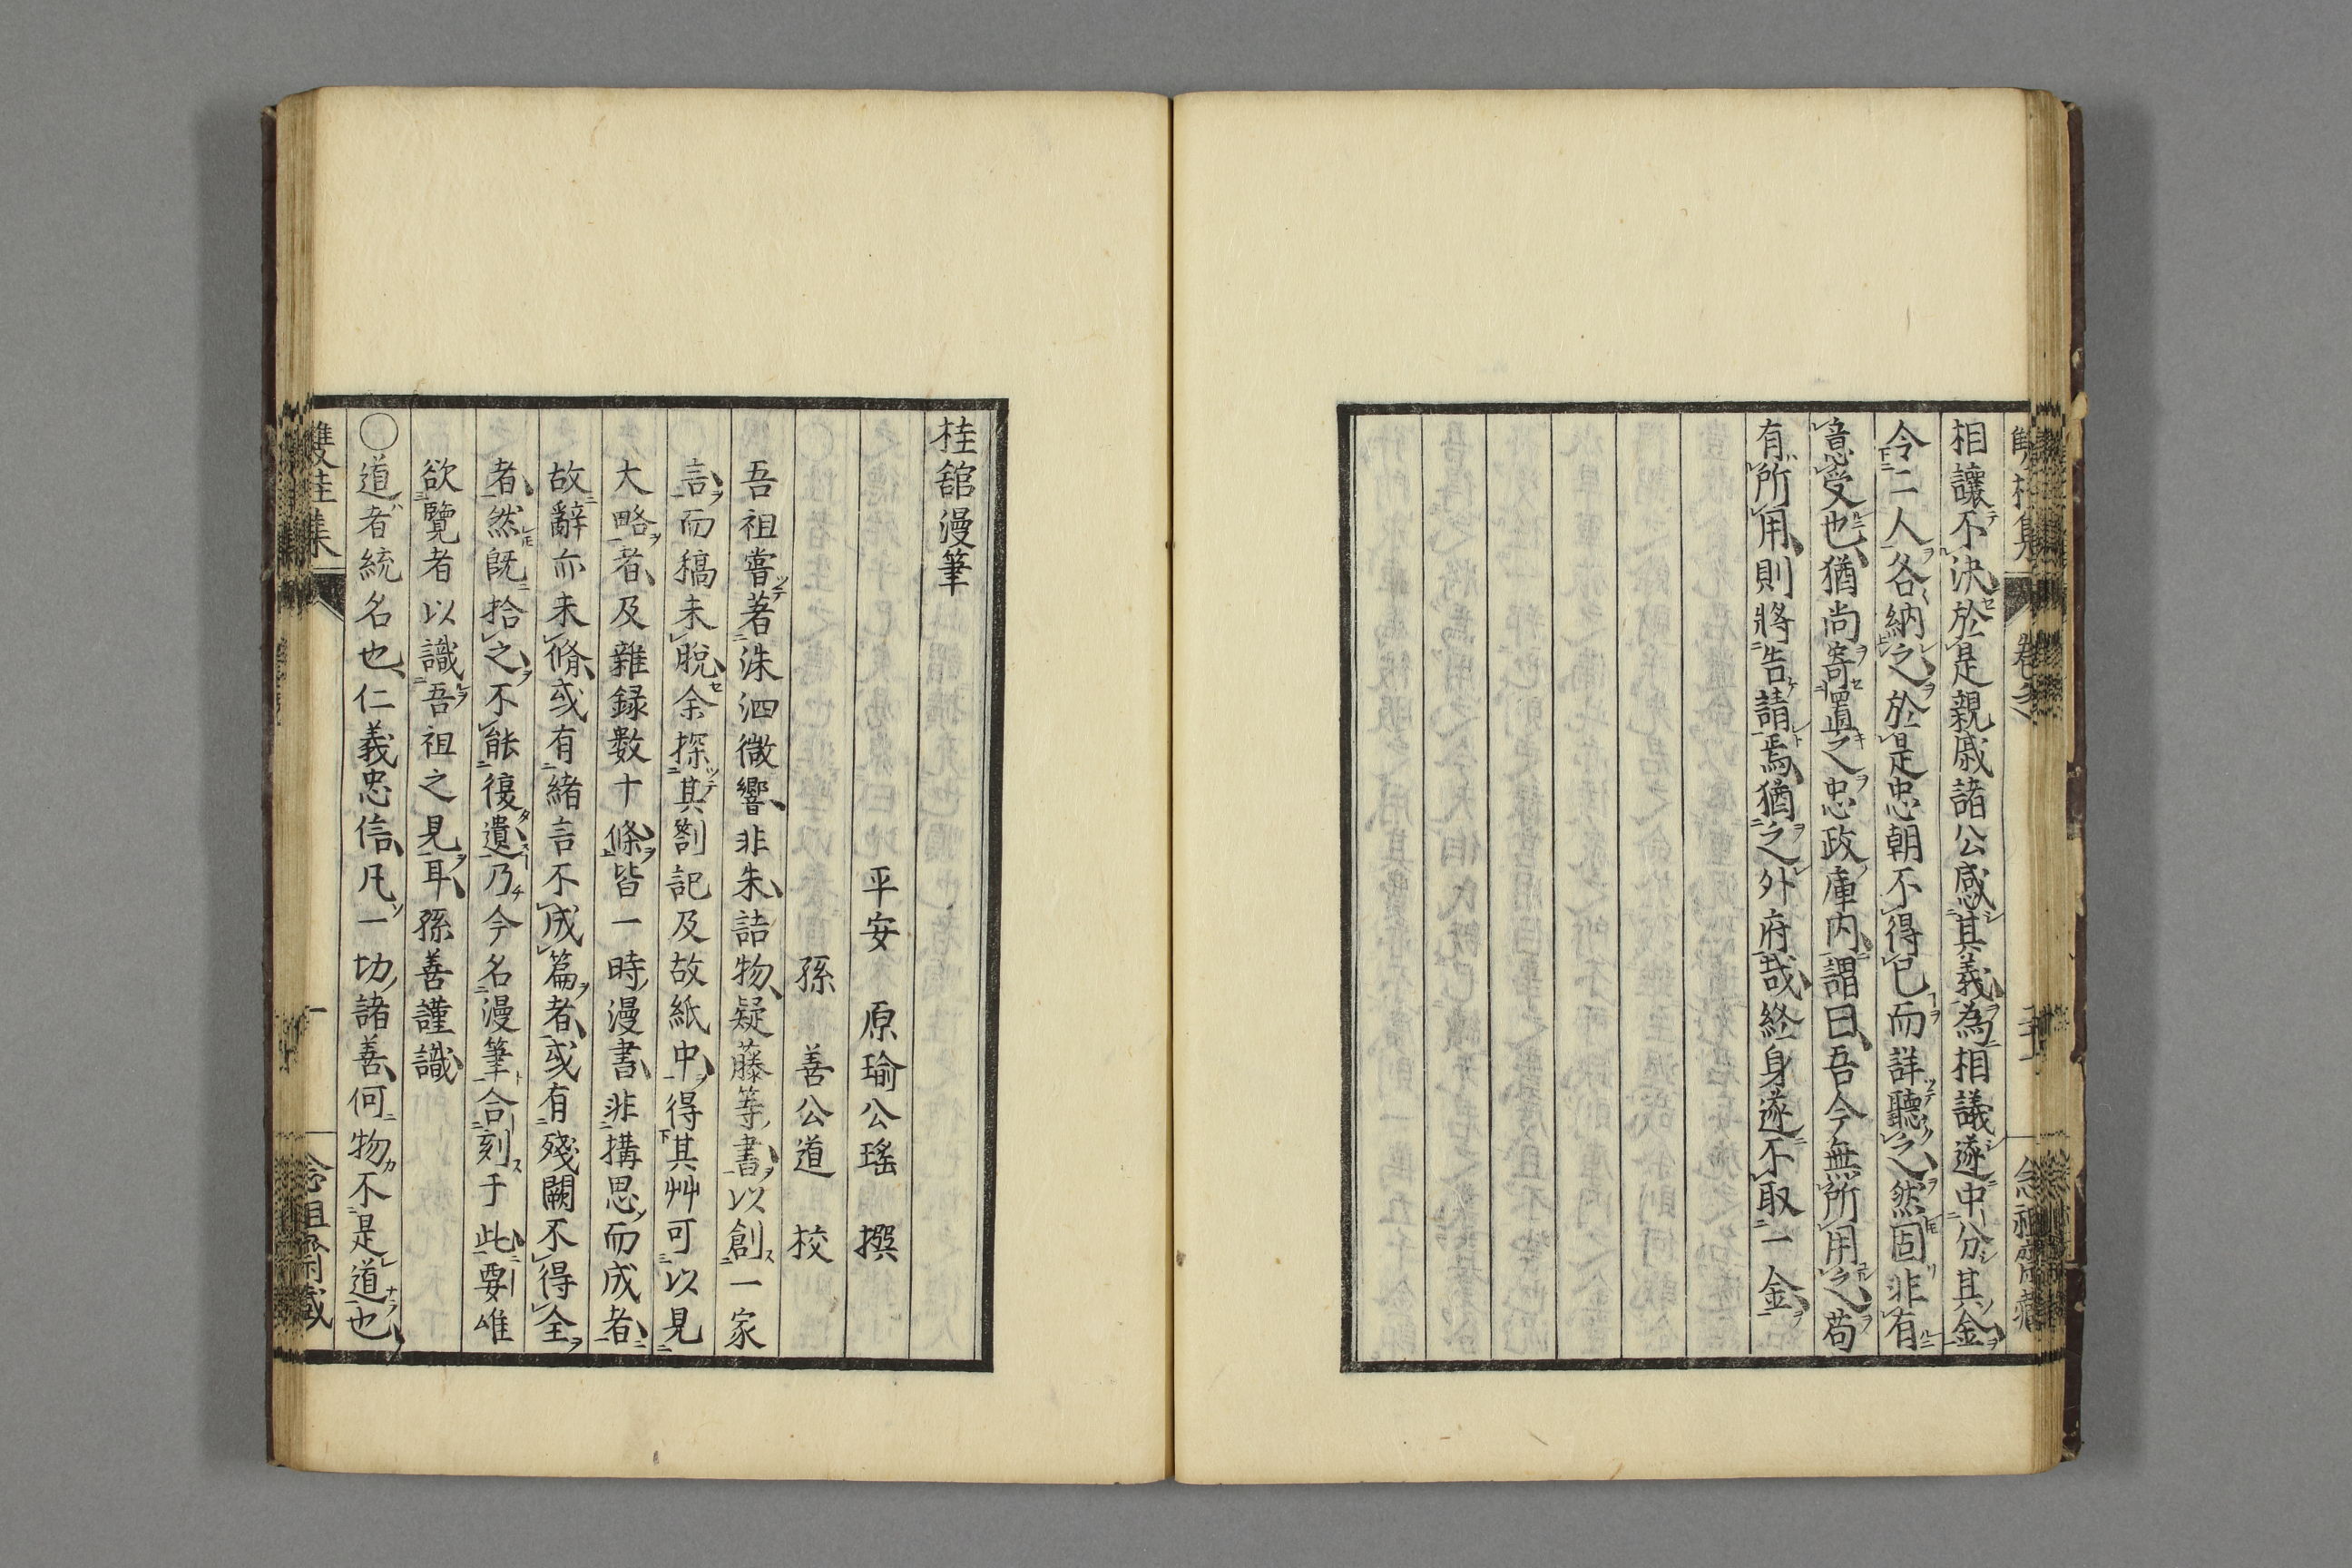 相讓不決於是親戚諸公感其義為相議遂中分其金
令二人各納之於是忠朝不得已而詳聽之然固非有
意受也猶尚寄置之忠政庫内謂曰吾今無所用之苟
有所用則將告請焉猶之外府哉終身遂不取一金
桂舘漫筆
平安　原瑜公瑤　撰
孫　善公道　校
吾祖嘗著洙泗微響非朱詰物疑藤等書以創一家
言而稿未脫余探其劄記及故紙中得其艸可以見
大略者及雜録數十條皆一時漫書非搆思而成者
故辭亦未脩或有緒言不成篇者或有殘闕不得全
者然既拾之不能復遺乃今名漫筆合刻于此要唯
欲覽者以識吾祖之見耳孫善謹識
○道者統名也仁義忠信凡一切諸善何物不是道也
雙桂集
一